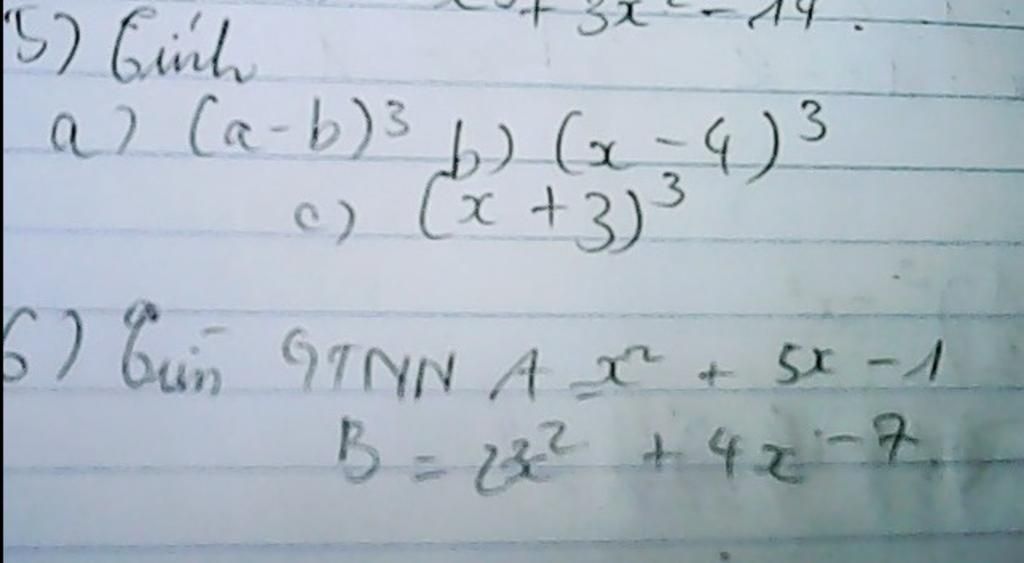 + 3x² - 14.
5) Tính
a) (a-b)³ b) (x - 4)³
c) (x + 3)³
6) Tìm GTNN A = x² + 5x - 1
B = 2x² + 4x - 7